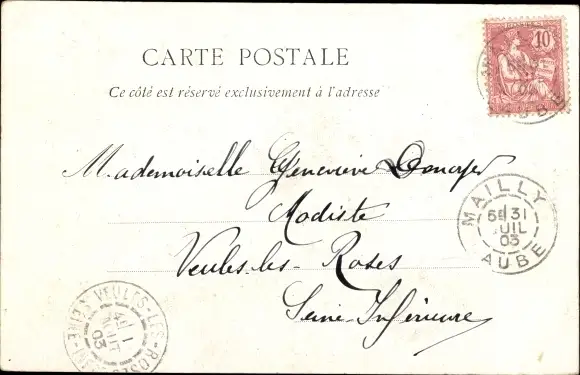 CARTE POSTALE
Ce côté est réservé exclusivement à l'adresse
10
AUBE
Mademoiselle Geneviève
Modiste
Veules-les-Roses
Seine-Inférieure
MAILLY
6E 31
JUIL
03
AUBE
VEULES-LES-ROSES
03